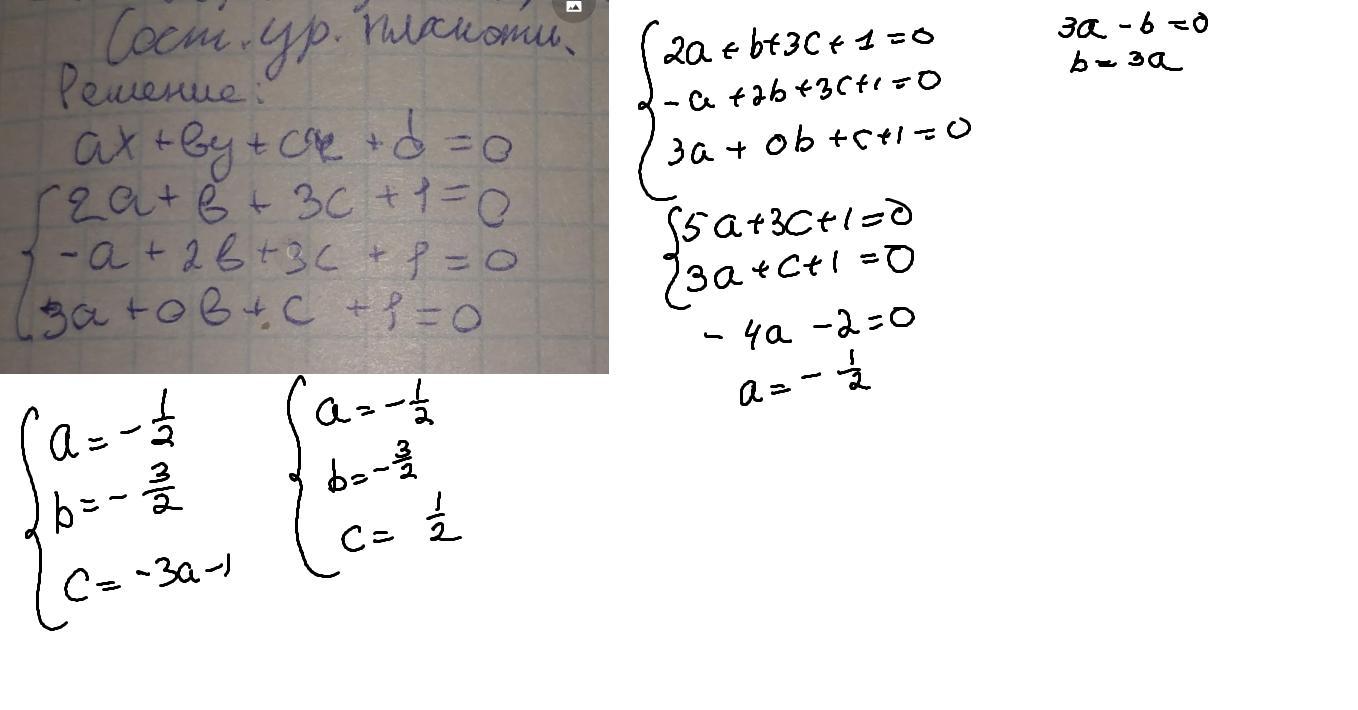 Сост. ур. плскоти.
Решение:
ax + by + cz + d = 0
2a + b + 3c + 1 = 0
-a + 2b + 3c + 1 = 0
3a + 0b + c + 1 = 0
2a + b + 3c + 1 = 0
-a + 2b + 3c + 1 = 0
3a + 0b + c + 1 = 0
5a + 3c + 1 = 0
3a + c + 1 = 0
- 4a - 2 = 0
a = - 1/2
3a - b = 0
b = 3a
a = - 1/2
b = - 3/2
c = -3a - 1
a = - 1/2
b = - 3/2
c = 1/2